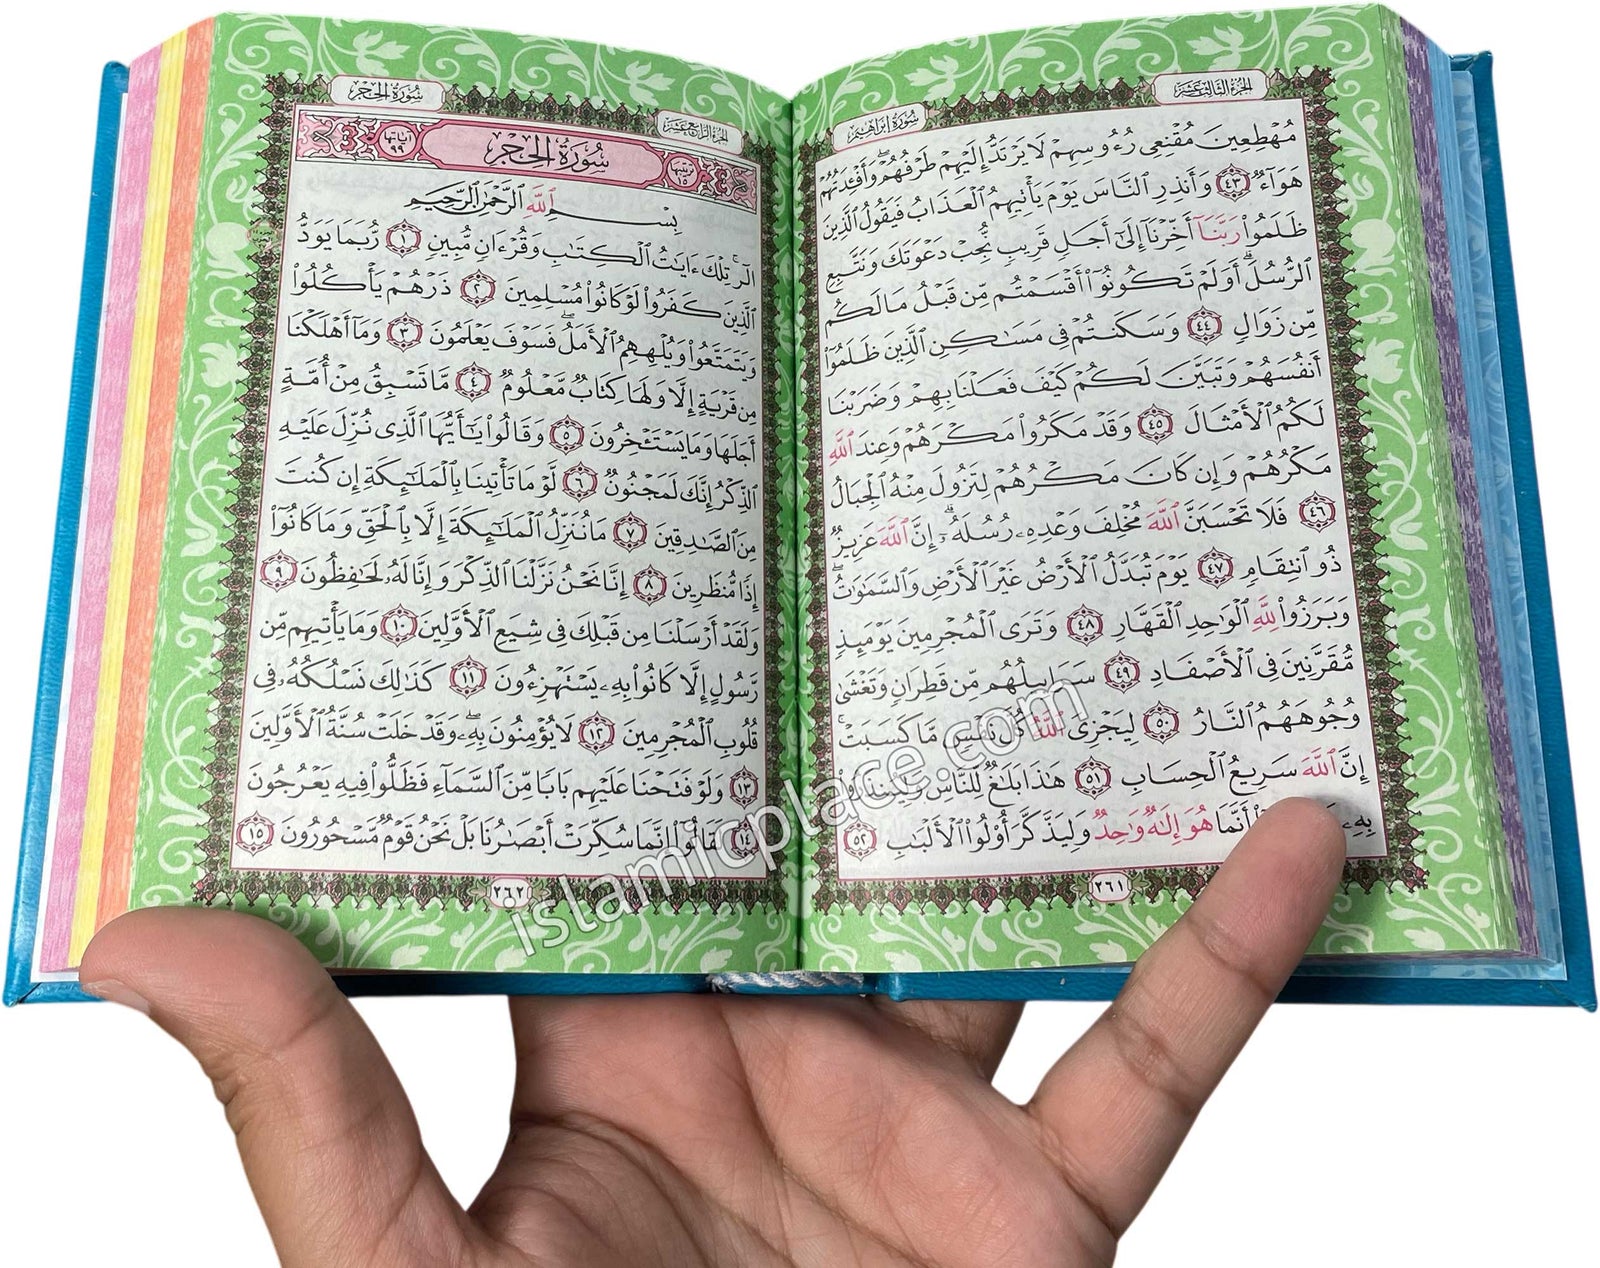 الجزء الثالث عشر
سورة إبراهيم
مُهْطِعِينَ مُقْنِعِي رُءُوسِهِمْ لَا يَرْتَدُّ إِلَيْهِمْ طَرْفُهُمْ ۖ وَأَفْـِٔدَتُهُمْ
هَوَآءٌ ٤٣ وَأَنذِرِ ٱلنَّاسَ يَوْمَ يَأْتِيهِمُ ٱلْعَذَابُ فَيَقُولُ ٱلَّذِينَ
ظَلَمُوا۟ رَبَّنَآ أَخِّرْنَآ إِلَىٰٓ أَجَلٍ قَرِيبٍ نُّجِبْ دَعْوَتَكَ وَنَتَّبِعِ
ٱلرُّسُلَ ۗ أَوَلَمْ تَكُونُوٓا۟ أَقْسَمْتُم مِّن قَبْلُ مَا لَكُم
مِّن زَوَالٍ ٤٤ وَسَكَنتُمْ فِي مَسَـٰكِنِ ٱلَّذِينَ ظَلَمُوٓا۟
أَنفُسَهُمْ وَتَبَيَّنَ لَكُمْ كَيْفَ فَعَلْنَا بِهِمْ وَضَرَبْنَا
لَكُمُ ٱلْأَمْثَالَ ٤٥ وَقَدْ مَكَرُوا۟ مَكْرَهُمْ وَعِندَ ٱللَّهِ
مَكْرُهُمْ وَإِن كَانَ مَكْرُهُمْ لِتَزُولَ مِنْهُ ٱلْجِبَالُ
٤٦ فَلَا تَحْسَبَنَّ ٱللَّهَ مُخْلِفَ وَعْدِهِۦ رُسُلَهُۥٓ ۗ إِنَّ ٱللَّهَ عَزِيزٌ
ذُو ٱنتِقَامٍ ٤٧ يَوْمَ تُبَدَّلُ ٱلْأَرْضُ غَيْرَ ٱلْأَرْضِ وَٱلسَّمَـٰوَٰتُ ۖ
وَبَرَزُوا۟ لِلَّهِ ٱلْوَٰحِدِ ٱلْقَهَّارِ ٤٨ وَتَرَى ٱلْمُجْرِمِينَ يَوْمَئِذٍ
مُّقَرَّنِينَ فِي ٱلْأَصْفَادِ ٤٩ سَرَابِيلُهُم مِّن قَطِرَانٍ وَتَغْشَىٰ
وُجُوهَهُمُ ٱلنَّارُ ٥٠ لِيَجْزِيَ ٱللَّهُ كُلَّ نَفْسٍ مَّا كَسَبَتْ ۚ
إِنَّ ٱللَّهَ سَرِيعُ ٱلْحِسَابِ ٥١ هَـٰذَا بَلَـٰغٌ لِّلنَّاسِ وَلِيُنذَرُوا۟
بِهِۦ أَنَّمَا هُوَ إِلَـٰهٌ وَٰحِدٌ وَلِيَذَّكَّرَ أُو۟لُوا۟ ٱلْأَلْبَـٰبِ ٥٢
٢٦١
الجزء الرابع عشر
سورة الحجر
ترتيبها ١٥
سُورَةُ الحِجْرِ
آياتها ٩٩
بِسْمِ ٱللَّهِ ٱلرَّحْمَـٰنِ ٱلرَّحِيمِ
الٓر ۚ تِلْكَ ءَايَـٰتُ ٱلْكِتَـٰبِ وَقُرْءَانٍ مُّبِينٍ ١ رُّبَمَا يَوَدُّ
ٱلَّذِينَ كَفَرُوا۟ لَوْ كَانُوا۟ مُسْلِمِينَ ٢ ذَرْهُمْ يَأْكُلُوا۟
وَيَتَمَتَّعُوا۟ وَيُلْهِهِمُ ٱلْأَمَلُ ۖ فَسَوْفَ يَعْلَمُونَ ٣ وَمَآ أَهْلَكْنَا
مِن قَرْيَةٍ إِلَّا وَلَهَا كِتَابٌ مَّعْلُومٌ ٤ مَّا تَسْبِقُ مِنْ أُمَّةٍ
أَجَلَهَا وَمَا يَسْتَـْٔخِرُونَ ٥ وَقَالُوا۟ يَـٰٓأَيُّهَا ٱلَّذِي نُزِّلَ عَلَيْهِ
ٱلذِّكْرُ إِنَّكَ لَمَجْنُونٌ ٦ لَّوْ مَا تَأْتِينَا بِٱلْمَلَـٰٓئِكَةِ إِن كُنتَ
مِنَ ٱلصَّـٰدِقِينَ ٧ مَا نُنَزِّلُ ٱلْمَلَـٰٓئِكَةَ إِلَّا بِٱلْحَقِّ وَمَا كَانُوٓا۟
إِذًا مُّنظَرِينَ ٨ إِنَّا نَحْنُ نَزَّلْنَا ٱلذِّكْرَ وَإِنَّا لَهُۥ لَحَـٰفِظُونَ ٩
وَلَقَدْ أَرْسَلْنَا مِن قَبْلِكَ فِي شِيَعِ ٱلْأَوَّلِينَ ١٠ وَمَا يَأْتِيهِم مِّن
رَّسُولٍ إِلَّا كَانُوا۟ بِهِۦ يَسْتَهْزِءُونَ ١١ كَذَٰلِكَ نَسْلُكُهُۥ فِي
قُلُوبِ ٱلْمُجْرِمِينَ ١٢ لَا يُؤْمِنُونَ بِهِۦ ۖ وَقَدْ خَلَتْ سُنَّةُ ٱلْأَوَّلِينَ
١٣ وَلَوْ فَتَحْنَا عَلَيْهِم بَابًا مِّنَ ٱلسَّمَآءِ فَظَلُّوا۟ فِيهِ يَعْرُجُونَ
١٤ لَقَالُوٓا۟ إِنَّمَا سُكِّرَتْ أَبْصَـٰرُنَا بَلْ نَحْنُ قَوْمٌ مَّسْحُورُونَ ١٥
٢٦٢
islamicplace.com